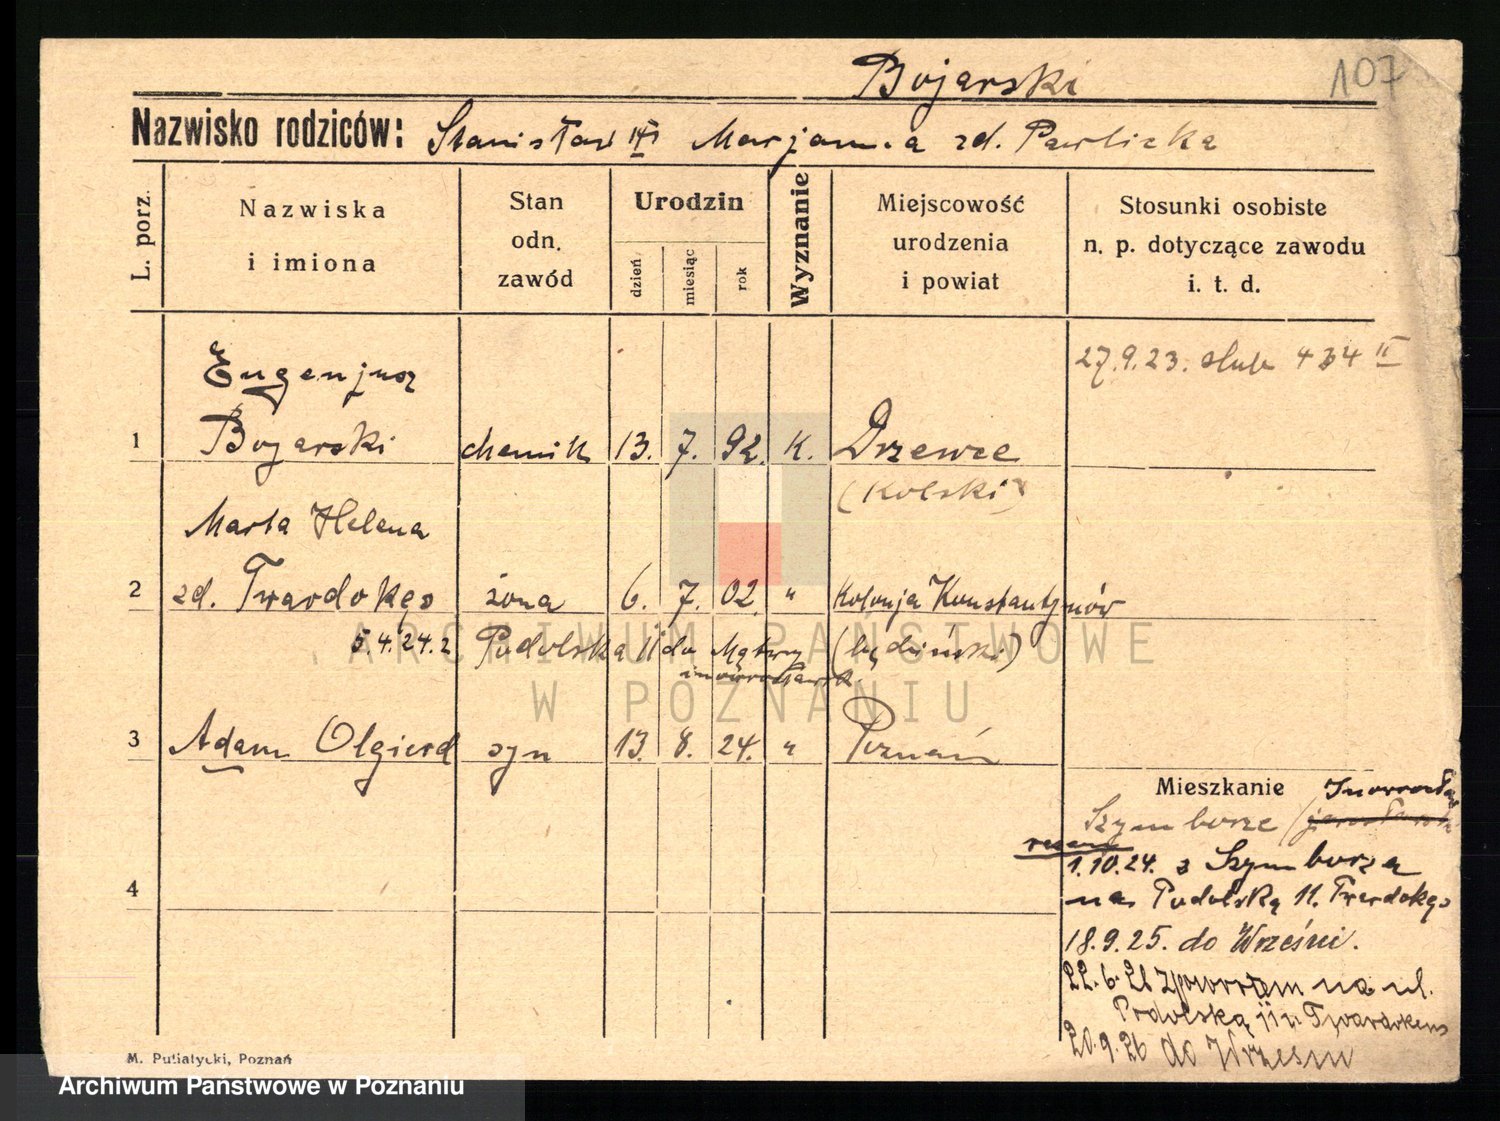 Bojarski
107
Nazwisko rodziców: Stanisław i Marjanna zd. Pawlicka
L. porz.
Nazwiska
i imiona
Stan
odn.
zawód
Urodzin
dzień
miesiąc
rok
Wyznanie
Miejscowość
urodzenia
i powiat
Stosunki osobiste
n. p. dotyczące zawodu
i. t. d.
27.9.23. ślub 434 II
Eugenjusz
1 Bojarski chemik 13. 7. 92. K. Drzewce
(Kolski)
Marta Helena
2 zd. Twardokęs żona 6. 7. 02. " Kolonja Konstantynów
5.4.24. z Podolska 11 do Mątwy (będziński)
inowrocławsk.
3 Adam Olgierd syn 13. 8. 24. " Poznań
4
Mieszkanie
Szymborze
1.10.24. z Szymborza
na Podolską 11. Twardokęs
18.9.25. do Wrześni.
22.6.26 zpowrotem na ul.
Podolską 11 Twardokens
20.9.26 do Wrześni
M. Putiatycki, Poznań
ARCHIWUM PAŃSTWOWE
W POZNANIU
Archiwum Państwowe w Poznaniu